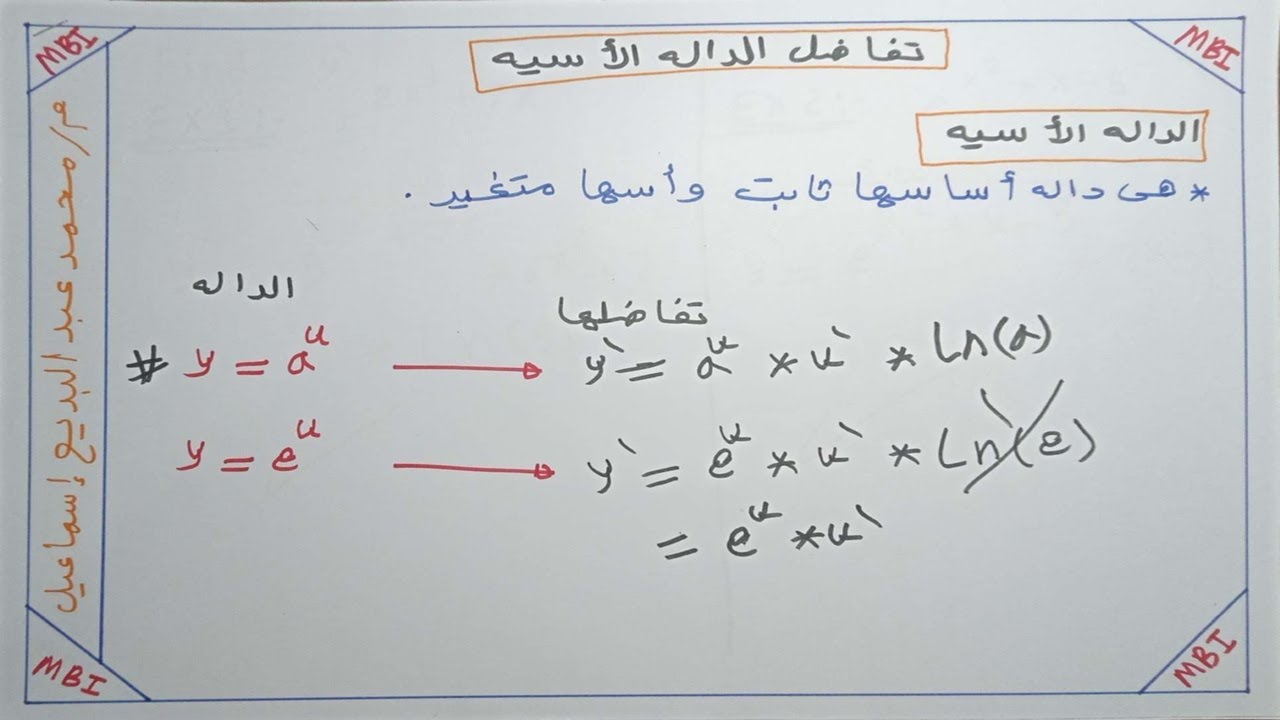 MBI
MBI
تفاضل الداله الأسيه
الداله الأسيه
* هى داله أساسها ثابت وأسها متغير .
الداله
تفاضلها
# y = a^u → y` = a^u * u` * Ln(a)
y = e^u → y` = e^u * u` * Ln(e)
= e^u * u`
م/محمد عبد البديع إسماعيل
MBI
MBI